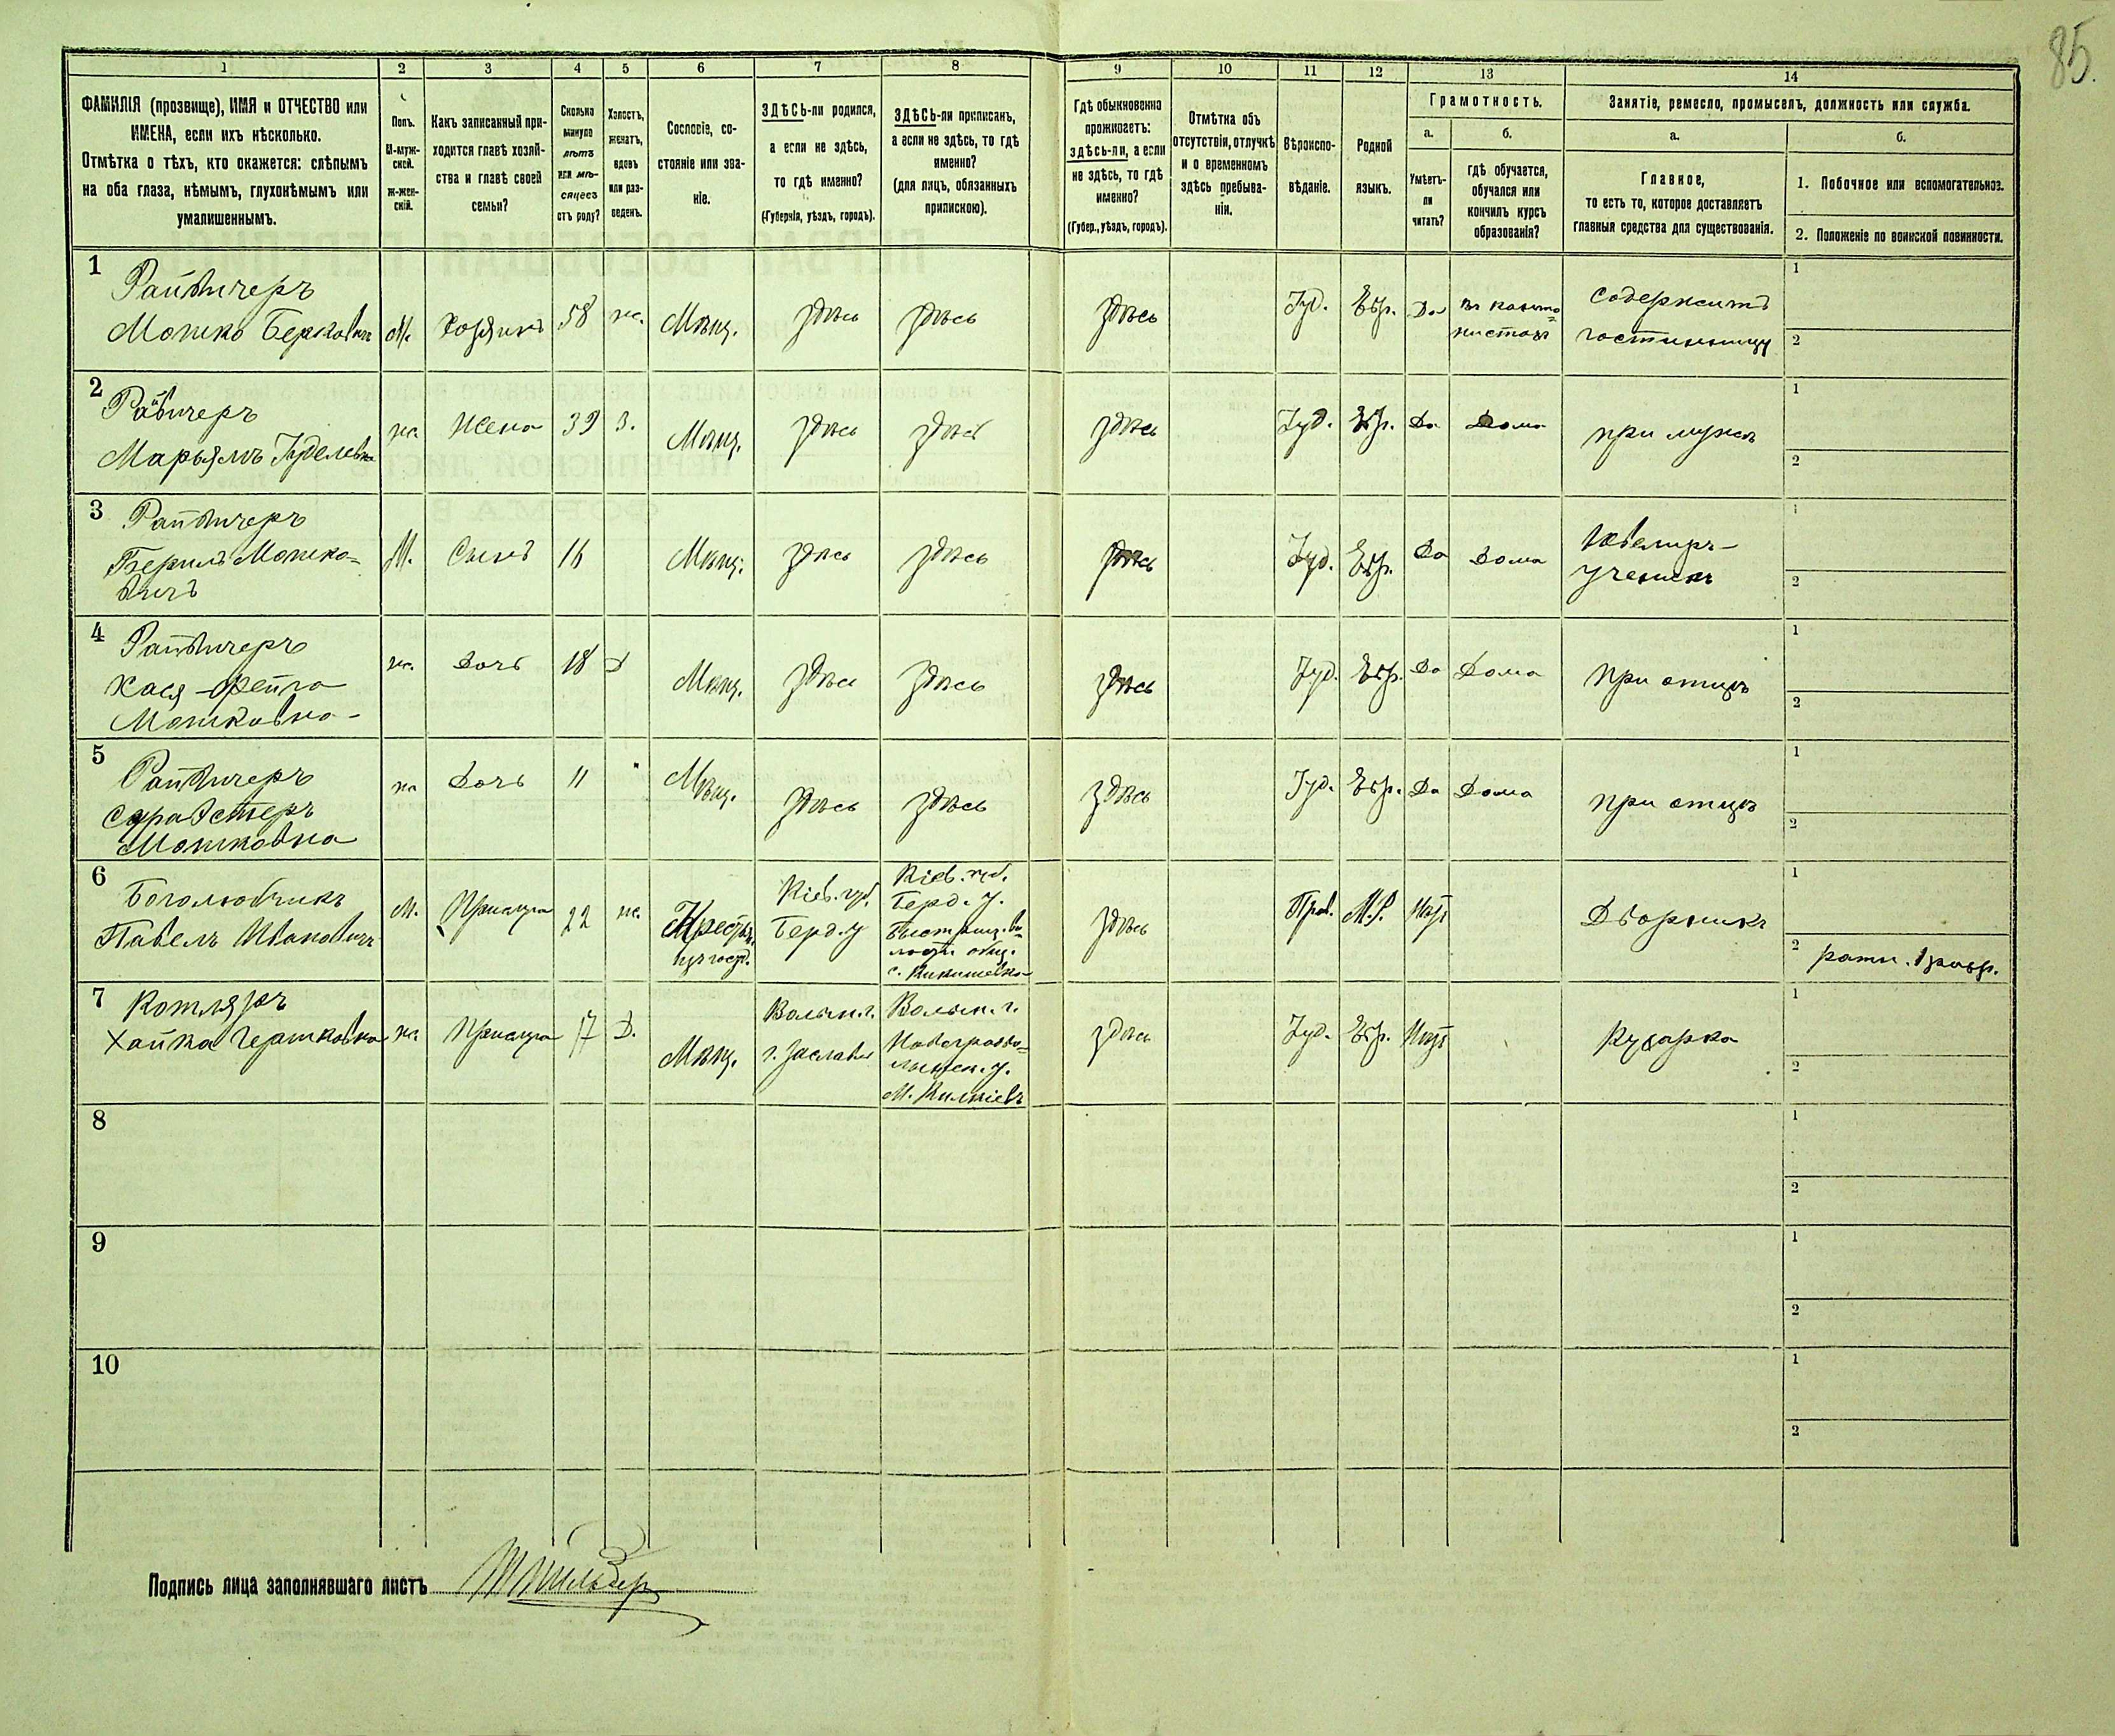 85.
1 2 3 4 5 6 7 8 9 10 11 12 13 14
ФАМИЛІЯ (прозвище), ИМЯ и ОТЧЕСТВО или
ИМЕНА, если ихъ нѣсколько.
Отмѣтка о тѣхъ, кто окажется: слѣпымъ
на оба глаза, нѣмымъ, глухонѣмымъ или
умалишеннымъ.
Полъ.
М-муж-
ской.
Ж-жен-
скій.
Какъ записанный при-
ходится главѣ хозяй-
ства и главѣ своей
семьи?
Сколько
минуло
лѣтъ
или мѣ-
сяцевъ
отъ роду?
Холостъ,
женатъ,
вдовъ
или раз-
веденъ.
Сословіе, со-
стояніе или зва-
ніе.
ЗДѢСЬ-ли родился,
а если не здѣсь,
то гдѣ именно?
(Губернія, уѣздъ, городъ).
ЗДѢСЬ-ли приписанъ,
а если не здѣсь, то гдѣ
именно?
(для лицъ, обязанныхъ
припискою).
Гдѣ обыкновенно
проживаетъ:
здѣсь-ли, а если
не здѣсь, то гдѣ
именно?
(Губер., уѣздъ, городъ).
Отмѣтка объ
отсутствіи, отлучкѣ
и о временномъ
здѣсь пребыва-
ніи.
Вѣроиспо-
вѣданіе.
Родной
языкъ.
Грамотность.
а.
Умѣетъ-
ли
читать?
б.
гдѣ обучается,
обучался или
кончилъ курсъ
образованія?
Занятіе, ремесло, промыселъ, должность или служба.
а.
Главное,
то есть то, которое доставляетъ
главныя средства для существованія.
б.
1. Побочное или вспомогательное.
2. Положеніе по воинской повинности.
1
Райвичеръ
Мошко Берковичъ
М.
Хозяинъ
58
ж.
Мѣщ.
здѣсь
здѣсь
здѣсь
Іуд.
Евр.
Да
въ канто=
нистахъ
содержитъ
гостинницу
1
2
2
Райвичеръ
Марьямъ Іуделевна
ж.
Жена
39
З.
Мѣщ.
здѣсь
здѣсь
здѣсь
Іуд.
Евр.
Да
Дома
при мужѣ
1
2
3
Райвичеръ
Берилъ Мошко=
вичъ
М.
Сынъ
16
Мѣщ.
здѣсь
здѣсь
здѣсь
Іуд.
Евр.
Да
Дома
Ювелиръ-
ученикъ
1
2
4
Райвичеръ
Хася-Фейга
Мошковна
ж.
Дочь
18
Д
Мѣщ.
здѣсь
здѣсь
здѣсь
Іуд.
Евр.
Да
Дома
при отцѣ
1
2
5
Райвичеръ
Сура Эстеръ
Мошковна
ж
Дочь
11
"
Мѣщ.
здѣсь
здѣсь
здѣсь
Іуд.
Евр.
Да
Дома
при отцѣ
1
2
6
Боголюбчикъ
Павелъ Ивановичъ
М.
Прислуга
22
ж.
Крестьян.
Кіев. губ.
Берд. у
Кіев. губ.
Берд. у.
здѣсь
Прав.
М.Р.
Нѣтъ
Дворникъ
1
2 ратн. 1 разр.
7
Котляръ
Хайка Гершковна
ж.
Прислуга
17
Д.
Мѣщ.
Волын. г.
г. Заславль
Волын. г.
Новоградво=
лынск. у.
здѣсь
Іуд.
Евр.
Нѣтъ
Кухарка
1
2
8
1
2
9
1
2
10
1
2
Подпись лица заполнявшаго листъ